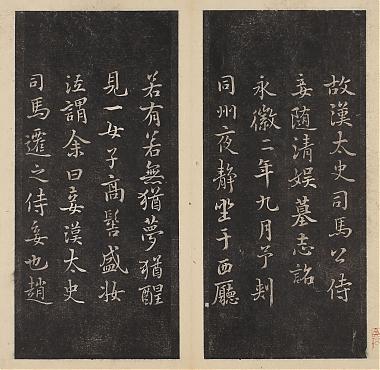 故漢太史司馬公侍
妾随清娱墓志銘
永徽二年九月予刺
同州夜静坐于西廳
若有若無猶夢猶醒
見一女子高髻盛妆
泣謂余曰妾漢太史
司馬遷之侍妾也趙